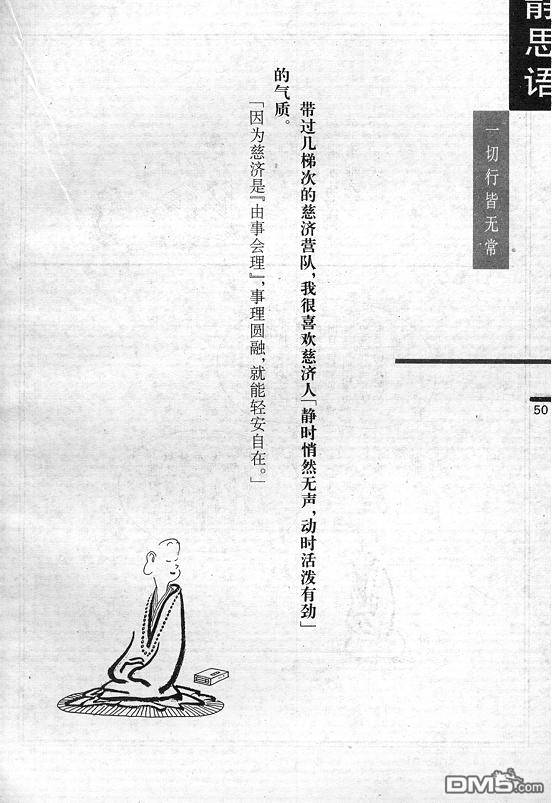 静思语
一切行皆无常
50
带过几梯次的慈济营队，我很喜欢慈济人「静时悄然无声，动时活泼有劲」
的气质。
「因为慈济是『由事会理』，事理圆融，就能轻安自在。」
DM5.com